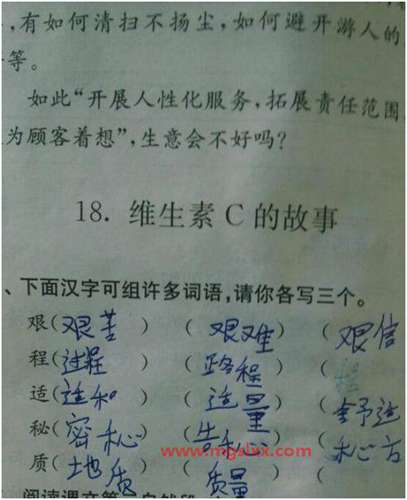 ,有如何清扫不扬尘,如何避开游人的
等。
如此“开展人性化服务,拓展责任范围
为顾客着想”,生意会不好吗?
18. 维生素 C 的故事
、下面汉字可组许多词语,请你各写三个。
艰(艰苦) (艰难) (艰信
程(过程) (路程) (
适(适和) (适量) (舒适
秘(密秘) ( ) (秘方
质(地质) (质量) (
www.mgslxx.com